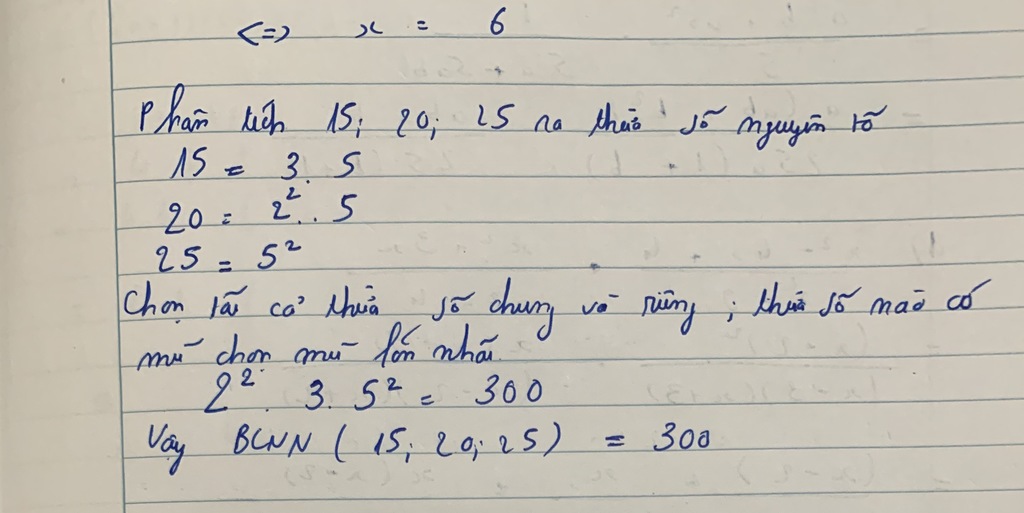 <=> x = 6
Phân tích 15; 20; 25 ra thừa số nguyên tố
15 = 3. 5
20 = 2². 5
25 = 5²
Chọn tất cả thừa số chung và riêng ; thừa số nào có
mũ chọn mũ lớn nhất
2². 3. 5² = 300
Vậy BCNN ( 15; 20; 25 ) = 300